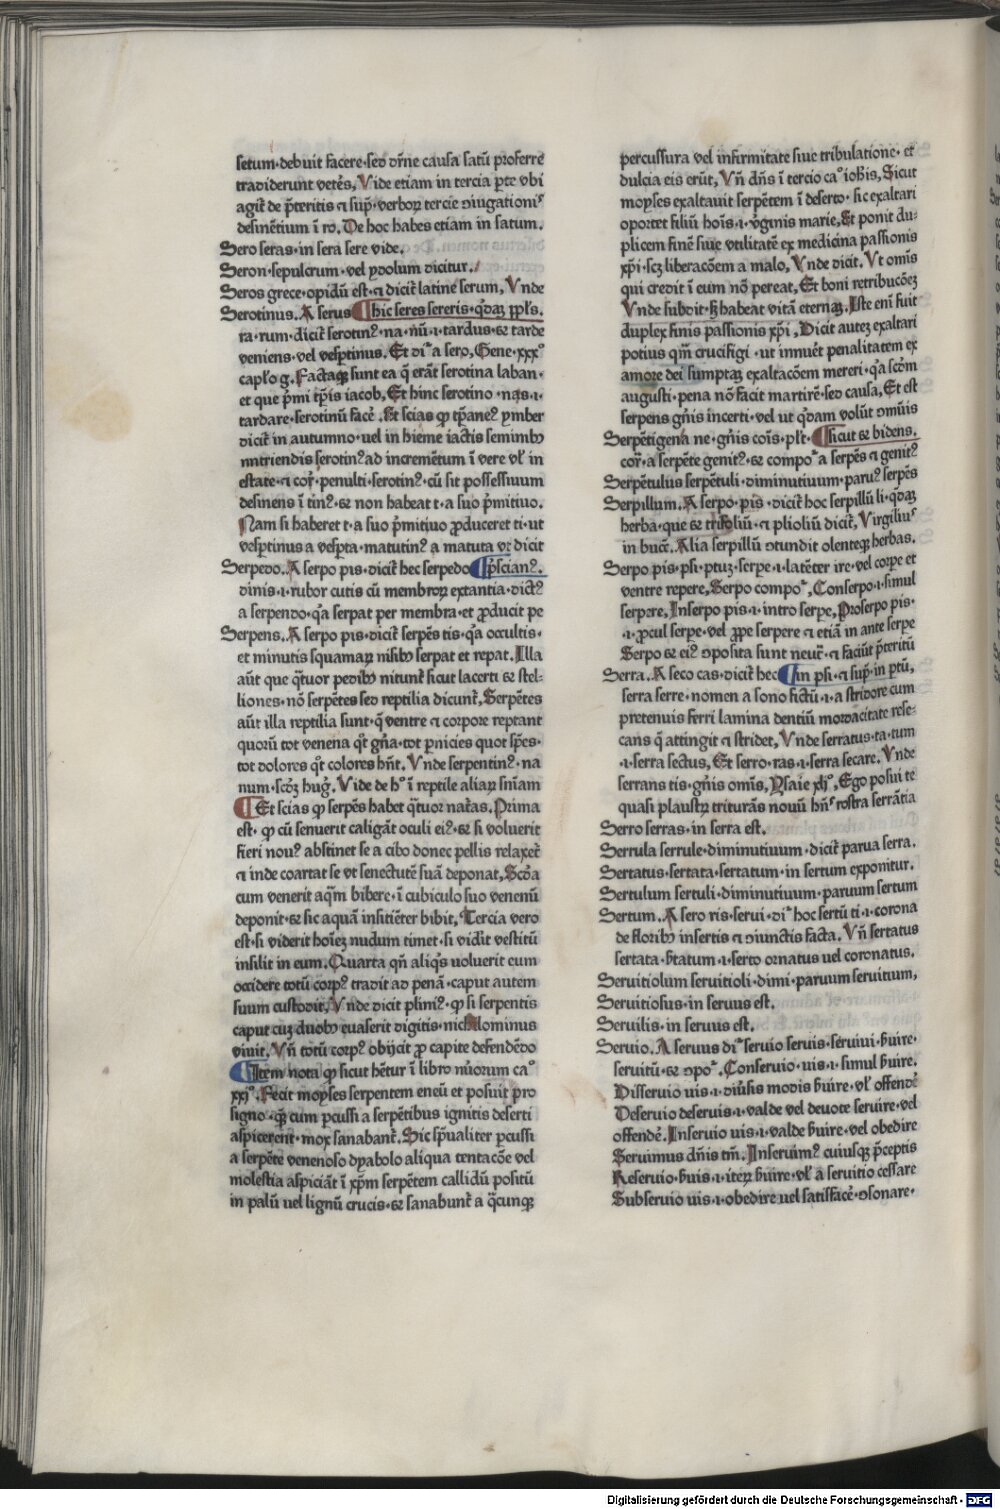 setum·debuit facere·sed or̄ne causa satū proferre
tradiderunt veteś, Vide etiam in tercia ꝑte vbi
agit̄ de p̄teritis ⁊ sup̄·verboꝝ tercie ↄiugationiˢ
desinētium ī ro. De hoc habes etiam in satum.
Sero seras·in sera sere vide.
Seron·sepulcrum·vel ydolum dicitur.
Seros grece·opidū est·⁊ dicit̄ latine serum, Vnde
Serotinus. A serus ¶hic seres sereris·q̄daꝫ ppl̄s.
ra·rum·dicit̄ serotin⁹·na·nū·ı·tardus·⁊ tarde
veniens·vel vesꝑtinus. Et diʳ a sero, Gene·xxx°
capl̄o g. Factaqꝫ sunt ea q̄ erāt serotina laban·
et que p̄mi tp̄is iacob, Et hinc serotino·nas·ı·
tardare·serotinū facē. Et scias ꝙ tp̄ane⁹ ymber
dicit̄ in autumno·uel in hieme iactis seminibꝫ
nutriendis serotin⁹ ad incremētum ī vere vl̄ in
estate·⁊ cor̄·penulti·serotin⁹·cū sit possessiuum
desinens ī tin⁹·⁊ non habeat t·a suo p̄mitiuo.
Nam si haberet t·a suo p̄mitiuo ꝓduceret ti·ut
vesꝑtinus a vesꝑta·matutin⁹ a matuta vt dicit
Serpedo. A serpo pis·dicit̄ hec serpedo ¶p̄scian⁹.
dinis·ı·rubor cutis cū membroꝝ extantia·dict⁹
a serpendo·q̄a serpat per membra·et ꝓducit pe
Serpens. A serpo pis·dicit̄ serpēs tis·q̄a occultis·
et minutis squamaꝝ nisibꝫ serpat et repat. Illa
aūt que q̄tuor pedibꝫ nitunt̄ sicut lacerti ⁊ stel-
liones·nō serpētes sed reptilia dicunt̄, Serpētes
aūt illa reptilia sunt·q̄ ventre ⁊ corpore reptant
quorū tot venena q̄t gn̄a·tot ꝑnicies quot sp̄es·
tot dolores q̄t colores hn̄t. Vnde serpentin⁹·na
num·scđꝫ huḡ. Vide de h° ī reptile aliaꝝ sn̄iam
¶Et scias ꝙ serpēs habet q̄tuor nat̄as. Prima
est·ꝙ cū senuerit caligāt oculi ei⁹·⁊ si voluerit
fieri nou⁹ abstinet se a cibo donec pellis relaxet̄
⁊ inde coartat se vt senectutē suā deponat, Scđa
cum venerit aq̄m bibere·ī cubiculo suo venenū
deponit·⁊ sic aquā insitiēter bibit, Tercia vero
est·si viderit hoīeꝫ nudum timet·si vidit̄ vestitū
insilit in eum. Quarta qn̄ aliq̄s voluerit eum
occidere totū corp⁹ tradit ad penā·caput autem
suum custodit. Vnde dicit plini⁹·ꝙ si serpentis
caput cuꝫ duobꝫ euaserit digitis·nichilominus
viuit. Vn̄ totū corp⁹ obijcit ꝓ capite defendēdo
¶Item nota ꝙ sicut hētur ī libro nūorum ca°
xxi°. Fecit moyses serpentem eneū et posuit pro
signo·q̄ꝫ cum ꝑcussi a serpētibus ignitis deserti
aspicerent·mox sanabant̄. Sic sp̄ualiter ꝑcussi
a serpēte venenoso dyabolo aliqua tentacōe vel
molestia aspiciāt ī xp̄m serpētem callidū positū
in palū uel lignū crucis·⁊ sanabunt̄ a q̄cunqꝫ
percussura vel infirmitate siue tribulatione·et
dulcia eis erūt, Vn̄ dn̄s ī tercio ca° ioh̄is, Sicut
moyses exaltauit serpētem ī deserto·sic exaltari
oportet filiū hoīs·ı·v̄ginis marie, Et ponit du-
plicem finē siue vtilitatē ex medicina passionis
xp̄i·scꝫ liberacōem a malo, Vnde dicit. Vt omīs
qui credit ī eum nō pereat, Et boni retribucōeꝫ
Vnde subdit·sꝫ habeat vitā eternaꝫ. Iste enī fuit
duplex finis passionis xp̄i, Dicit auteꝫ exaltari
potius q̄m crucifigi·ut innuēt penalitatem ex
amore dei sumptaꝫ exaltacōem mereri·q̄a scđm
augusti·pena nō facit martirē·sed causa, Et est
serpens gn̄is incerti·vel ut q̄dam volūt ↄmūis
Serpētigena ne·gn̄is coīs·pl̄t·¶sicut ⁊ bidens.
cor̄·a serpēte genit⁹·⁊ compoʳ a serpēs ⁊ genit⁹
Serpētulus serpētuli·diminutiuum·paru⁹ serpēs
Serpillum. A serpo·pis·dicit̄ hoc serpillū li·q̄daꝫ
herba·que ⁊ trifoliū·⁊ plioliū dicit̄, Virgiliuˢ
in bucc̄. Alia serpillū ↄtundit olenteqꝫ herbas.
Serpo pis·psi·ptuꝫ·serpe·ı·latēter ire·vel corpe et
ventre repere, Serpo compoʳ, Conserpo·ı·simul
serpere, Inserpo pis·ı·intro serpe, Proserpo pis·
·ı·ꝓcul serpe·vel ꝓpe serpere ⁊ etiā in ante serpe
Serpo ⁊ ei⁹ ↄposita sunt neut̄·⁊ faciūt p̄teritū
Serra. A seco cas·dicit̄ hec ¶in psi·⁊ sup̄·in ptū,
serra serre·nomen a sono fictū·ı·a stridore cum
pretenuis ferri lamina dentiū mordacitate rese-
cans q̄ attingit ⁊ stridet, Vnde serratus·ta·tum
·ı·serra sectus, Et serro·ras·ı·serra secare. Vnde
serrans tis·gn̄is omīs, Ysaie xli°, Ego posui te
quasi plaustꝝ triturās nouū hn̄ˢ rostra serrātia
Serro serras·in serra est.
Serrula serrule·diminutiuum·dicit̄ parua serra.
Sertatus·sertata·sertatum·in sertum exponitur.
Sertulum sertuli·diminutiuum·paruum sertum
Sertum. A sero ris·serui·diʳ hoc sertū ti·ı·corona
de floribꝫ insertis ⁊ ↄiunctis facta. Vn̄ sertatus
sertata·s̄tatum·ı·serto ornatus uel coronatus.
Seruitiolum seruitioli·dimi·paruum seruitium,
Seruitiosus·in seruus est.
Seruilis·in seruus est.
Seruio. A seruus diʳ seruio seruis·seruiui·s̄uire·
seruitū·⁊ ↄpoʳ. Conseruio·uis·ı·simul s̄uire.
Disseruio uis·ı·diūsis modis s̄uire·vl̄ offendē
Deseruio deseruis·ı·valde vel deuote seruire·vel
offendē. Inseruio uis·ı·valde s̄uire·vel obedire
Seruimus dn̄is tm̄. Inseruim⁹ cuiusqꝫ p̄ceptis
Reseruio·s̄uis·ı·iteꝝ s̄uire·vl̄ a seruitio cessare
Subseruio uis·ı·obedire uel satisfacē·ↄsonare·
Digitalisierung gefördert durch die Deutsche Forschungsgemeinschaft - DFG